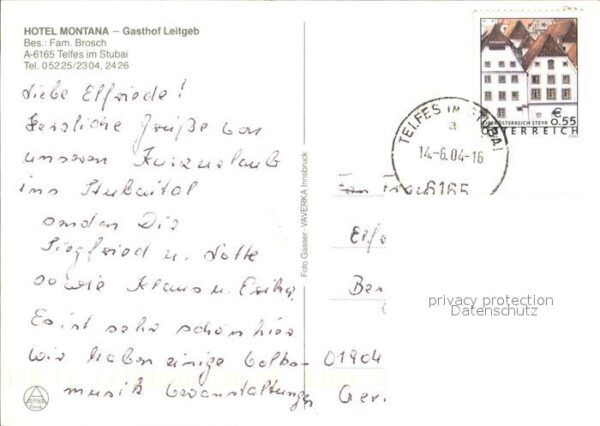 HOTEL MONTANA – Gasthof Leitgeb
Bes.: Fam. Brosch
A-6165 Telfes im Stubai
Tel. 05225/2304, 2426
Liebe Elfriede!
Herzliche Grüße von
unserem Kurzurlaub
ins Stubaital
senden Dir
Siegfried u. Lotte
sowie Klaus u. Erika.
Es ist sehr schön hier.
Wir haben einige Volks-
musik Veranstaltungen
Foto Gasser - VAVERKA Innsbruck
TELFES IM STUBAI
a
14.-6.04-16
6165
€
0.55
OBERÖSTERREICH STEYR
ÖSTERREICH
Elfr
Ber
01904
Ger
privacy protection
Datenschutz